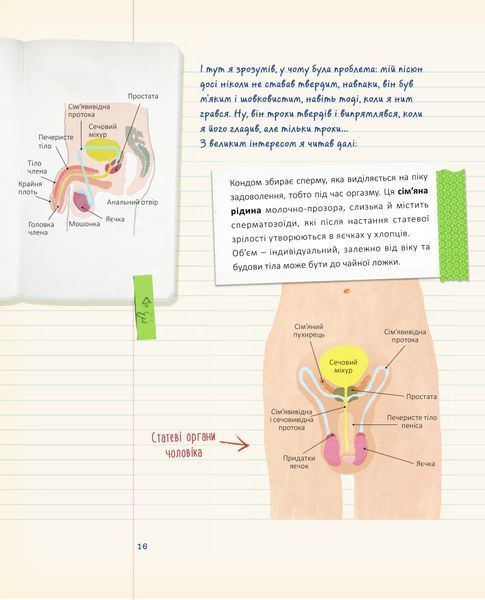 І тут я зрозумів, у чому була проблема: мій пісюн
досі ніколи не ставав твердим, навпаки, він був
м'яким і шовковистим, навіть тоді, коли я ним
грався. Ну, він трохи твердів і випрямлявся, коли
я його гладив, але тільки трохи...
З великим інтересом я читав далі:
Простата
Сім'явивідна
протока
Сечовий
міхур
Печеристе
тіло
Тіло
члена
Крайня
плоть
Головка
члена
Мошонка
Яєчка
Анальний отвір
Кондом збирає сперму, яка виділяється на піку
задоволення, тобто під час оргазму. Ця сім'яна
рідина молочно-прозора, слизька й містить
сперматозоїди, які після настання статевої
зрілості утворюються в яєчках у хлопців.
Об'єм – індивідуальний, залежно від віку та
будови тіла може бути до чайної ложки.
Сім'яний
пухирець
Сім'явивідна
протока
Сечовий
міхур
Простата
Сім'явивідна
і сечовивідна
протока
Печеристе тіло
пеніса
Придатки
яєчок
Яєчка
Статеві органи
чоловіка
16